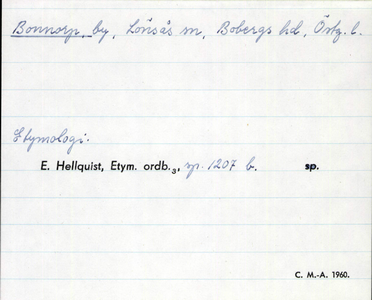 Bonnorp, by, Lönsås sn, Bobergs hd, Östg. l.
Etymologi:
E. Hellquist, Etym. ordb.₃, sp. 1207 b. sp.
C. M.-A. 1960.